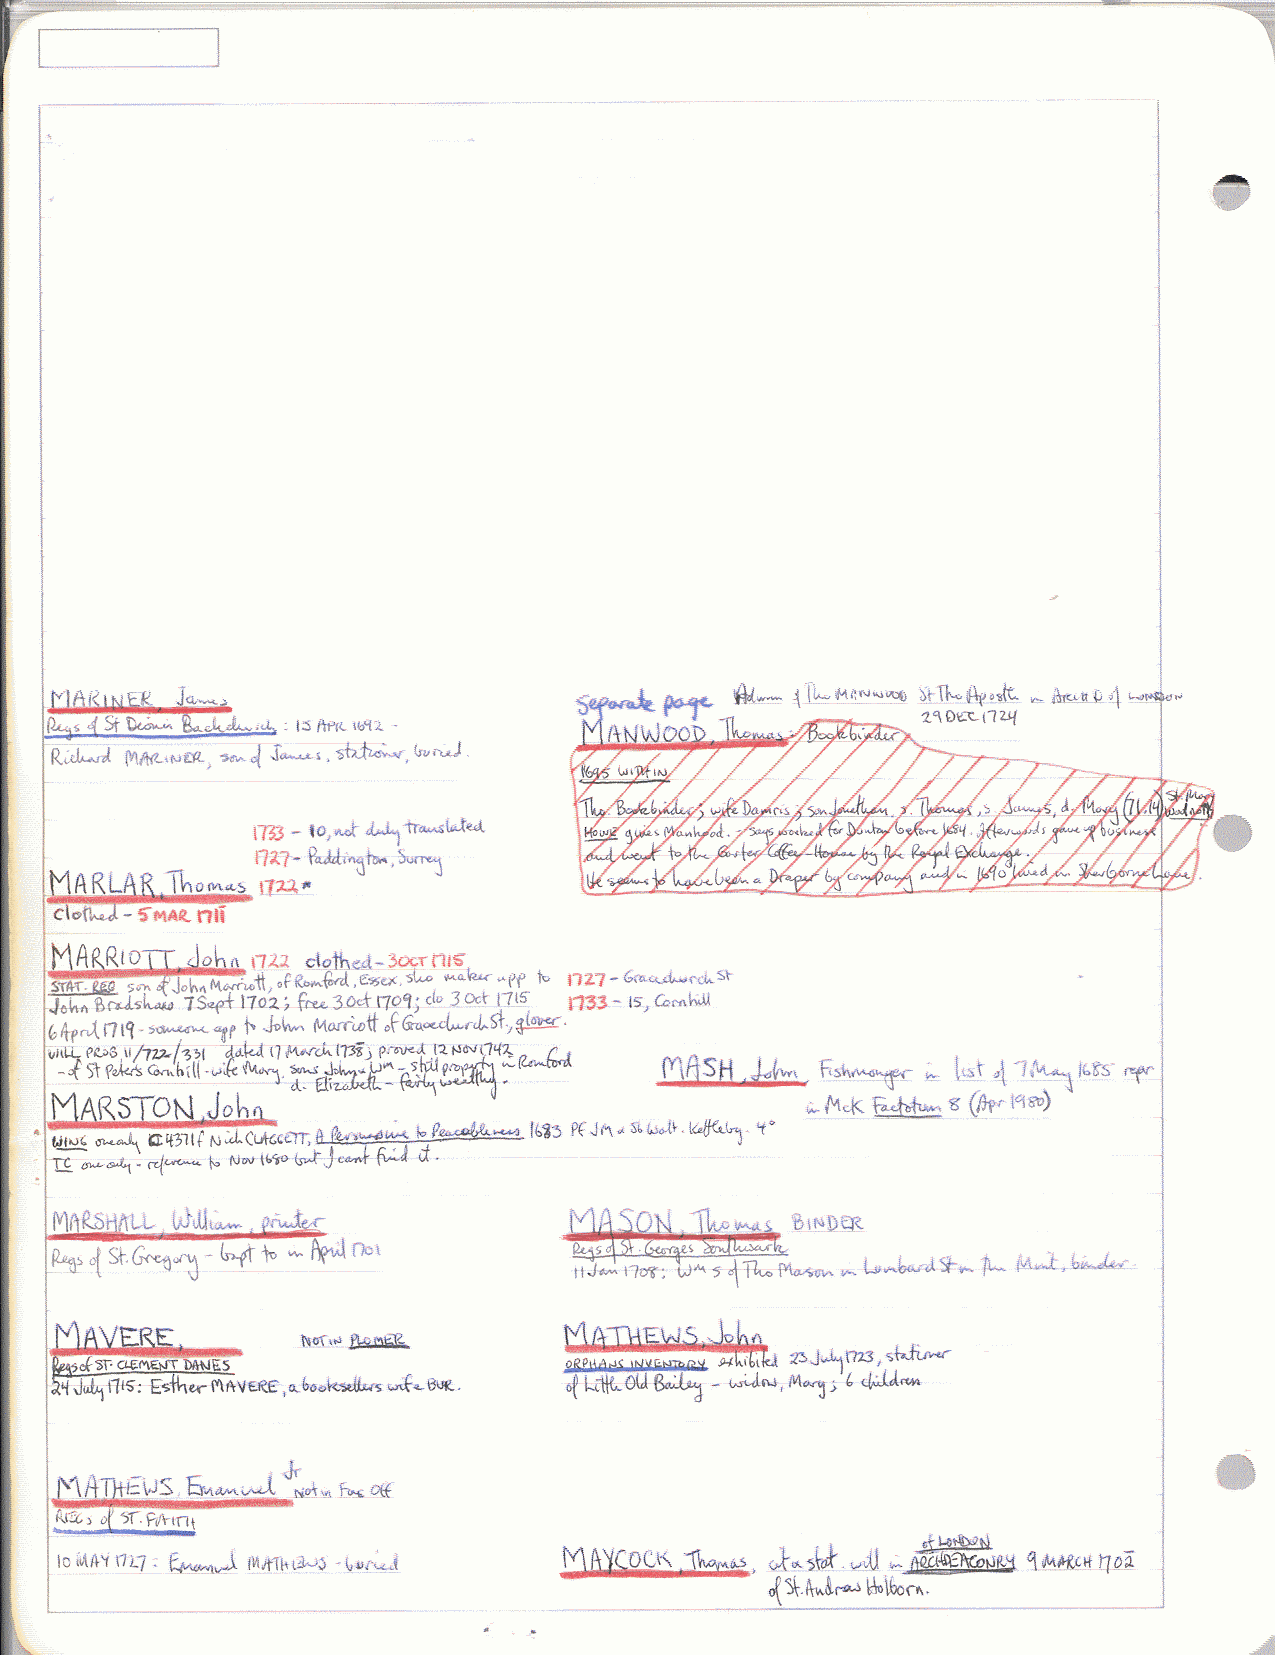 MARINER, James
Regs of St Dionis Backchurch : 15 APR 1692 -
Richard MARINER, son of James, stationer, buried.
Separate page Admon of Tho MANWOOD St Tho Apostle in Archd of LONDON
29 DEC 1724
MANWOOD, Thomas: Bookbinder
1695 WITHIN
Tho. Bookbinder; wife Damris; son Jonathan, s. Thomas, s. James, d. Mary (71.14) St. Mary Woolnoth
HOWE gives Manhood. - Says worked for Dunton before 1684. Afterwards gave up business
and went to the Carter Coffee-House by the Royal Exchange.
He seems to have been a Draper by company and in 1690 lived in Sherborne Lane.
1733 - 10, not duly translated
1727 - Paddington, Surrey
MARLAR, Thomas 1722 *
Clothed - 5 MAR 1711
MARRIOTT, John 1722 clothed - 3 OCT 1715
STAT. REG son of John Marriott, of Romford, Essex, sho maker app to
John Bradshaw 7 Sept 1702; free 3 Oct 1709; clo 3 Oct 1715
1727 - Gracechurch St
1733 - 15, Cornhill
6 April 1719 - someone app to John Marriott of Gracechurch St., glover.
WILL PROB 11/722/331 dated 17 March 1738; proved 12 NOV 1742
- of St Peter's Cornhill - wife Mary. sons John & Wm - still property in Romford
d. Elizabeth - fairly wealthy.
MASH, John, Fishmonger in list of 7 May 1685 repr
in McK Factotum 8 (Apr 1980)
MARSTON, John
WING one only C4371f Nich CLAGETT, A Persuasive to Peaceableness 1683 Pf JM & Walt. Kettleby. 4°
TC one only - reference to Nov 1680 but I cant find it.
MARSHALL, William, printer
Regs of St. Gregory - bapt to in April 1701
MASON, Thomas BINDER
Regs of St. Georges Southwark
11 Jan 1708; Wm s of Tho Mason in Lombard St in the Mint, binder.
MAVERE, NOT IN PLOMER
Regs of ST. CLEMENT DANES
24 July 1715: Esther MAVERE, a booksellers wife BUR.
MATHEWS, John
ORPHANS INVENTORY exhibited 23 July 1723, stationer
of Little Old Bailey - widow, Mary; 6 children
MATHEWS, Emanuel Jr Not in Fox Off
REGs of ST. FAITH
10 MAY 1727: Emanuel MATHEWS - buried
MAYCOCK, Thomas, cit & stat. will in ARCHDEACONRY of LONDON 9 MARCH 1702
of St. Andrew Holborn.